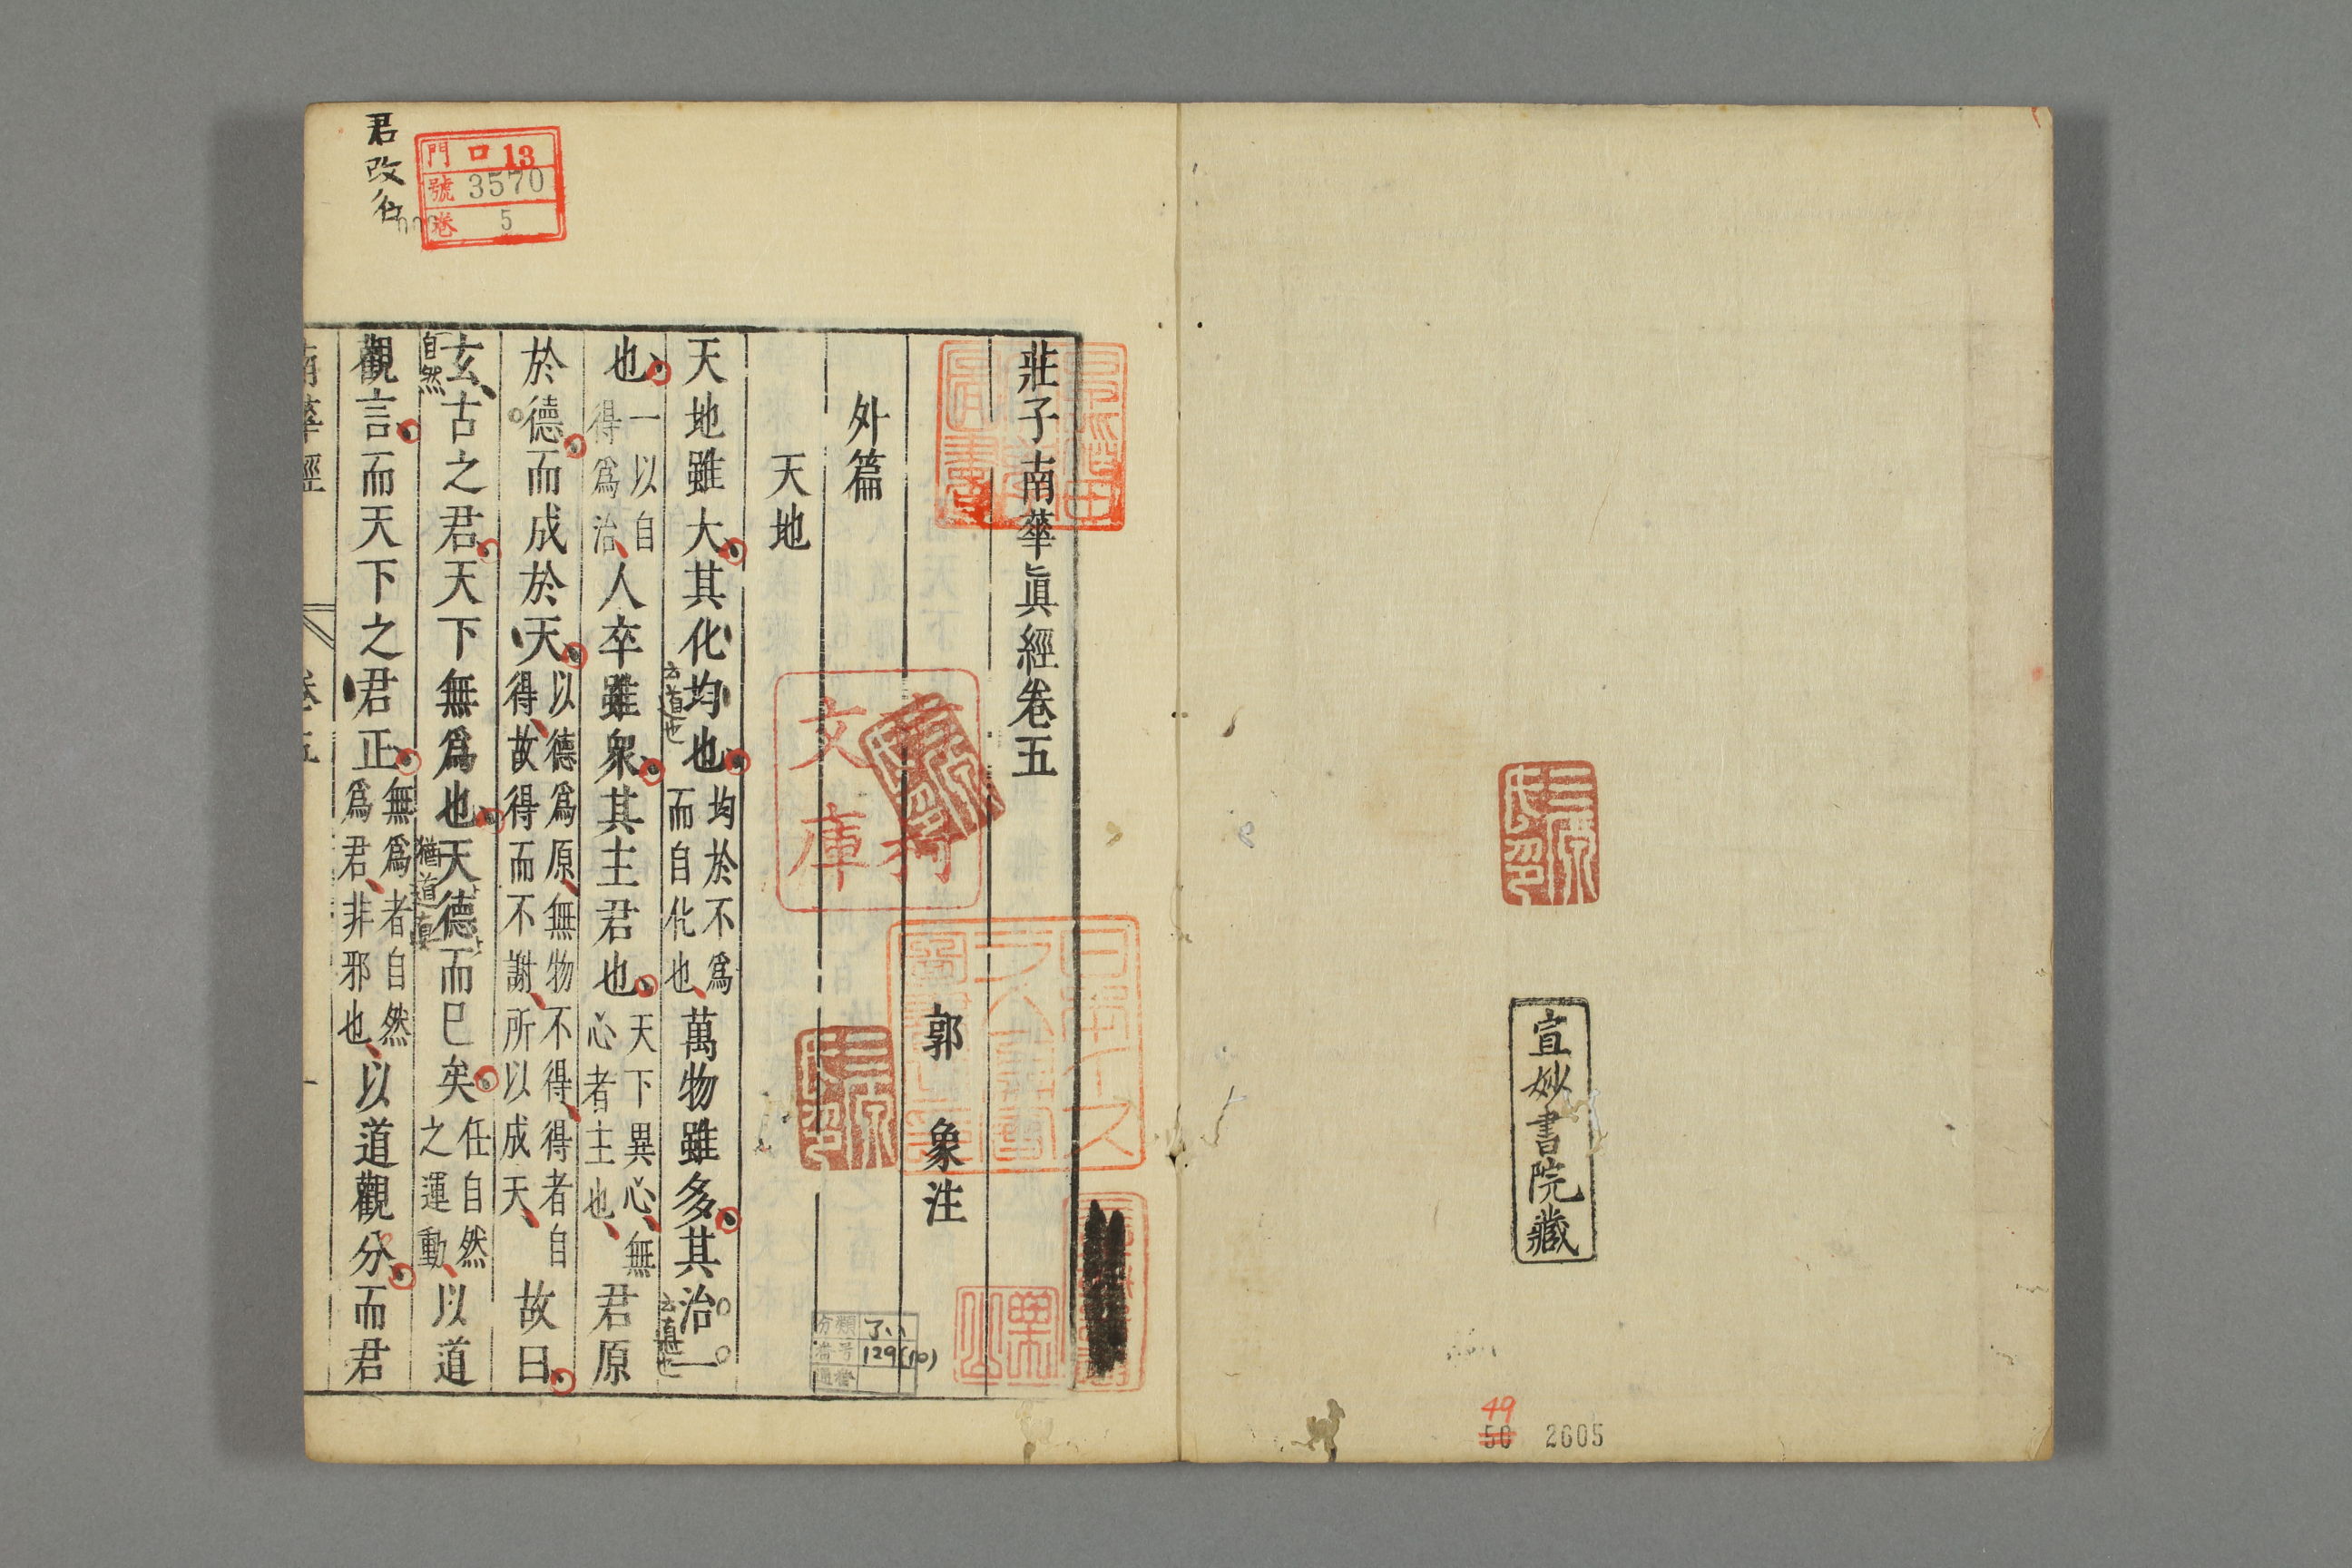 宣妙書院藏
49
50 2605
莊子南華眞經卷五
郭 象 注
外篇
天地
天地雖大其化均也均於不爲而自化也萬物雖多其治一
也一以自得爲治人卒雖衆其主君也天下異心無心者主也君原
於德而成於天以德爲原無物不得得者自得故得而不謝所以成天故曰
玄古之君天下無爲也天德而已矣任自然之運動以道
觀言而天下之君正無爲者自然爲君非邪也以道觀分而君
南華經 卷五 一
自然
君改名
門 口 13
號 3570
卷 5
文庫
129(10)